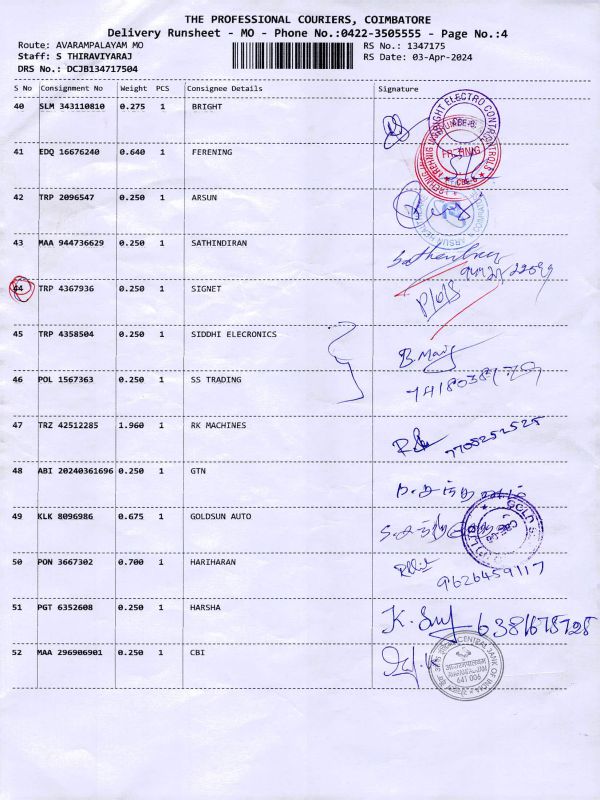 THE PROFESSIONAL COURIERS, COIMBATORE
Delivery Runsheet - MO - Phone No.:0422-3505555 - Page No.:4
Route: AVARAMPALAYAM MO RS No.: 1347175
Staff: S THIRAVIYARAJ RS Date: 03-Apr-2024
DRS No.: DCJB134717504
S No Consignment No Weight PCS Consignee Details Signature
40 SLM 343110810 0.275 1 BRIGHT
41 EDQ 16676240 0.640 1 FERENING
42 TRP 2096547 0.250 1 ARSUN
43 MAA 944736629 0.250 1 SATHINDIRAN
44 TRP 4367936 0.250 1 SIGNET
45 TRP 4358504 0.250 1 SIDDHI ELECRONICS
46 POL 1567363 0.250 1 SS TRADING
47 TRZ 42512285 1.960 1 RK MACHINES
7708252525
48 ABI 20240361696 0.250 1 GTN
49 KLK 8096986 0.675 1 GOLDSUN AUTO
50 PON 3667302 0.700 1 HARIHARAN
9626459117
51 PGT 6352608 0.250 1 HARSHA
52 MAA 296906901 0.250 1 CBI
CENTRAL BANK OF INDIA
641 006